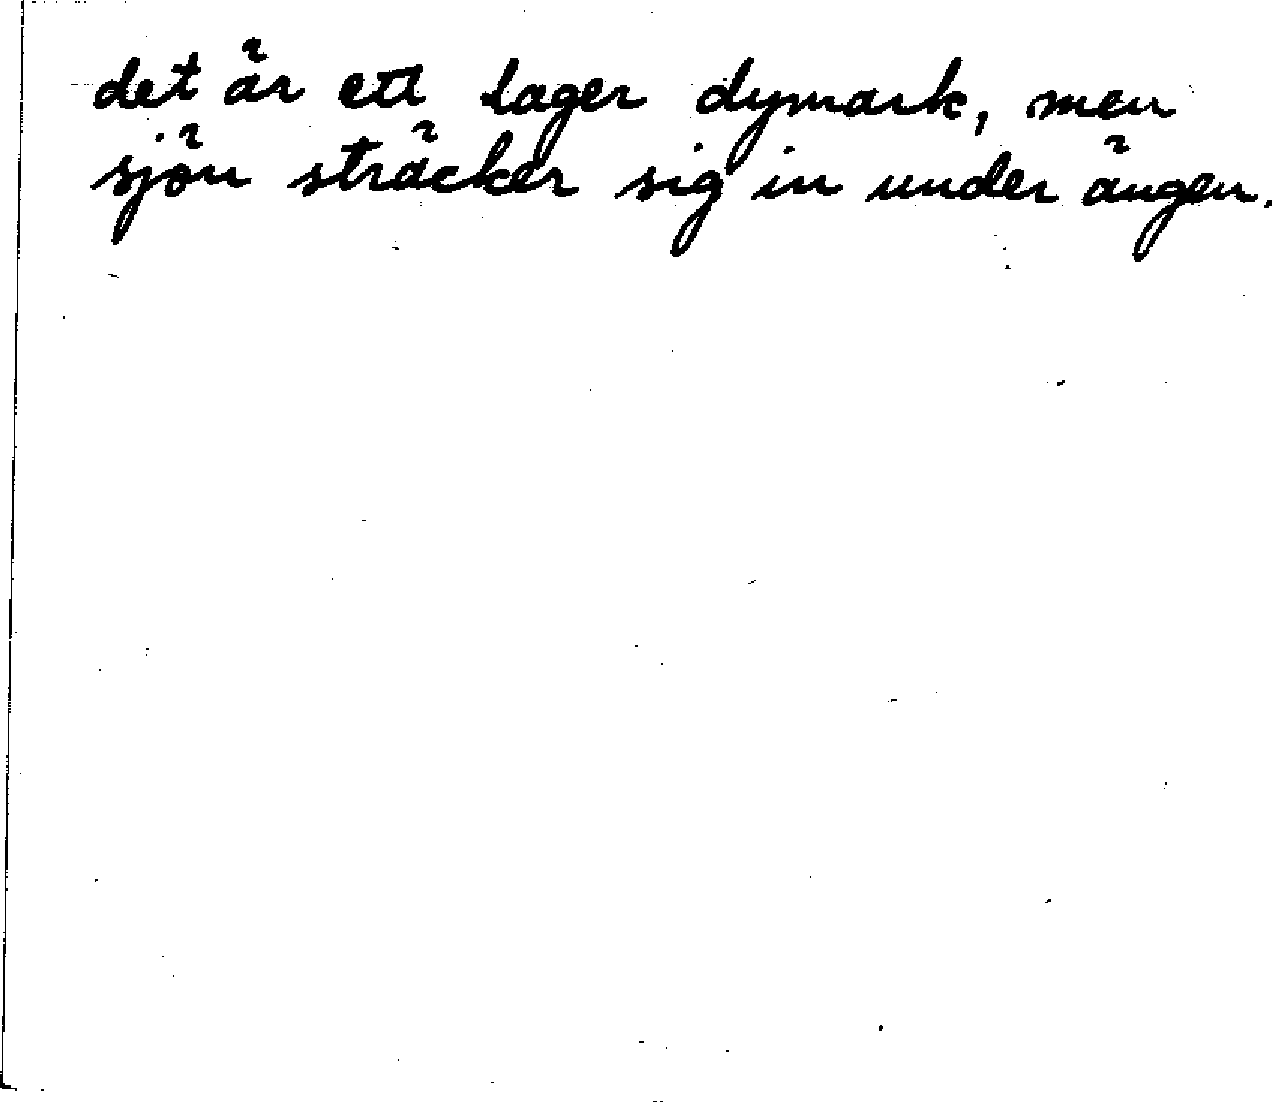 det är ett lager dymark, men
sjön sträcker sig in under ängen.